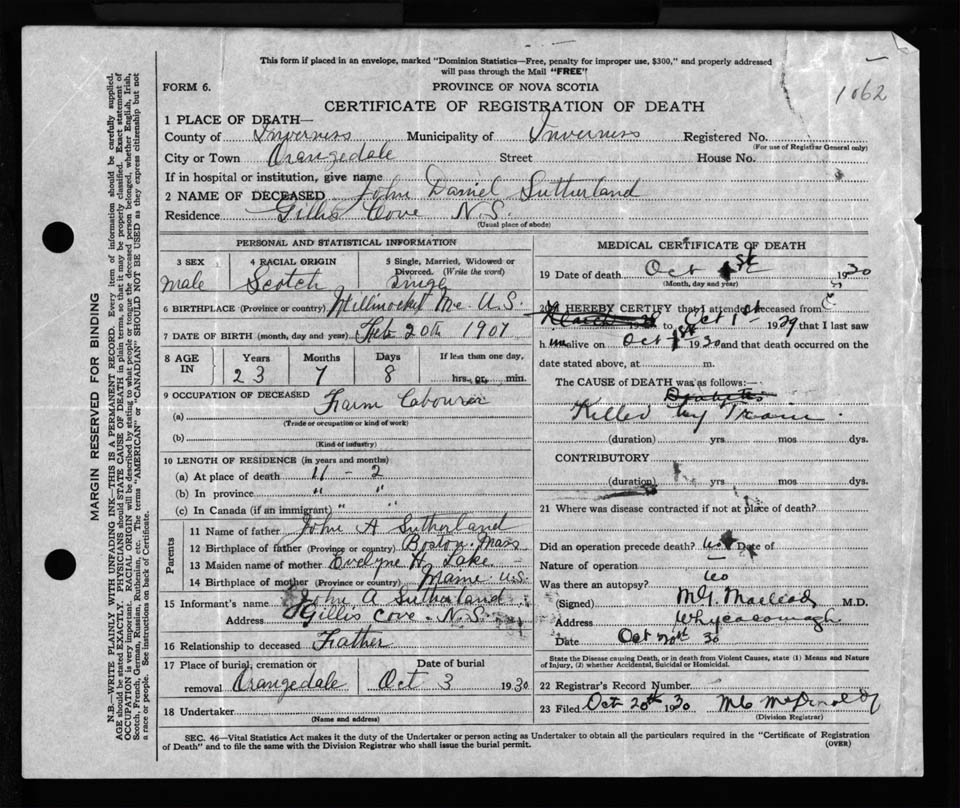 This form if placed in an envelope, marked "Dominion Statistics—Free, penalty for improper use, $300," and properly addressed
will pass through the Mail "FREE"
1062
FORM 6.
PROVINCE OF NOVA SCOTIA
CERTIFICATE OF REGISTRATION OF DEATH
1 PLACE OF DEATH—
County of Inverness Municipality of Inverness Registered No.
(For use of Registrar General only)
City or Town Orangedale Street House No.
If in hospital or institution, give name
2 NAME OF DECEASED John Daniel Sutherland
Residence Gillis Cove N.S.
(Usual place of abode)
PERSONAL AND STATISTICAL INFORMATION
3 SEX 4 RACIAL ORIGIN 5 Single, Married, Widowed or
Divorced. (Write the word)
male Scotch Single
6 BIRTHPLACE (Province or country) Millinocket Me U.S.
7 DATE OF BIRTH (month, day and year) Feb 20th 1907
8 AGE IN Years Months Days If less than one day,
23 7 8 hrs. or min.
9 OCCUPATION OF DECEASED Farm Labourer
(a)
(Trade or occupation or kind of work)
(b)
(Kind of industry)
10 LENGTH OF RESIDENCE (in years and months)
(a) At place of death 11 - 2
(b) In province " "
(c) In Canada (if an immigrant) " "
Parents
11 Name of father John A Sutherland
12 Birthplace of father (Province or country) Boston Mass
13 Maiden name of mother Evelyne H. Lake
14 Birthplace of mother (Province or country) Maine U.S.
15 Informant's name John A Sutherland
Address Gillis Cove N.S.
16 Relationship to deceased Father
17 Place of burial, cremation or Date of burial
removal Orangedale Oct 3 1930
18 Undertaker
(Name and address)
MEDICAL CERTIFICATE OF DEATH
19 Date of death Oct 1st 1930
(Month, day and year)
20 I HEREBY CERTIFY that I attended deceased from
to Oct 1st 1929 that I last saw
h im alive on Oct 1st 1930 and that death occurred on the
date stated above, at m.
The CAUSE OF DEATH was as follows:—
Diabetes
Killed by Train.
(duration) yrs mos dys.
CONTRIBUTORY
(duration) yrs mos dys.
21 Where was disease contracted if not at place of death?
Did an operation precede death? no Date of
Nature of operation
Was there an autopsy? no
(Signed) MacLeod M.D.
Address Whycocomagh
Date Oct 20th 30
State the Disease causing Death, or in death from Violent Causes, state (1) Means and Nature
of Injury, (2) whether Accidental, Suicidal or Homicidal.
22 Registrar's Record Number
23 Filed Oct 20th 1930
(Division Registrar)
SEC. 46—Vital Statistics Act makes it the duty of the Undertaker or person acting as Undertaker to obtain all the particulars required in the "Certificate of Registration
of Death" and to file the same with the Division Registrar who shall issue the burial permit. (OVER)
MARGIN RESERVED FOR BINDING
N.B.—WRITE PLAINLY WITH UNFADING INK—THIS IS A PERMANENT RECORD. Every item of information should be carefully supplied.
AGE should be stated EXACTLY. PHYSICIANS should STATE CAUSE OF DEATH in plain terms, so that it may be properly classified. Exact statement of
OCCUPATION is very important. RACIAL ORIGIN will be described by stating to what people or tongue the deceased person belonged, whether English, Irish,
Scotch, French, German, Russian, Ruthenian, etc. The terms "AMERICAN" or "CANADIAN" SHOULD NOT BE USED as they express citizenship but not
a race or people. See instructions on back of Certificate.